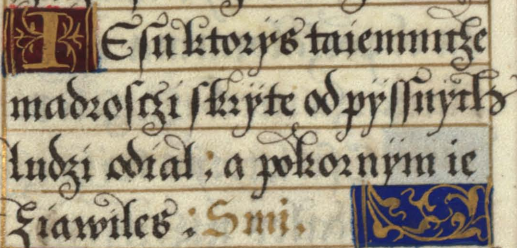 IESu ktorÿs taiemnitże
madrosczi skrÿte od pÿssnÿch
ludzi odial ; a pokornÿm ie
ziawiles ; Smi.